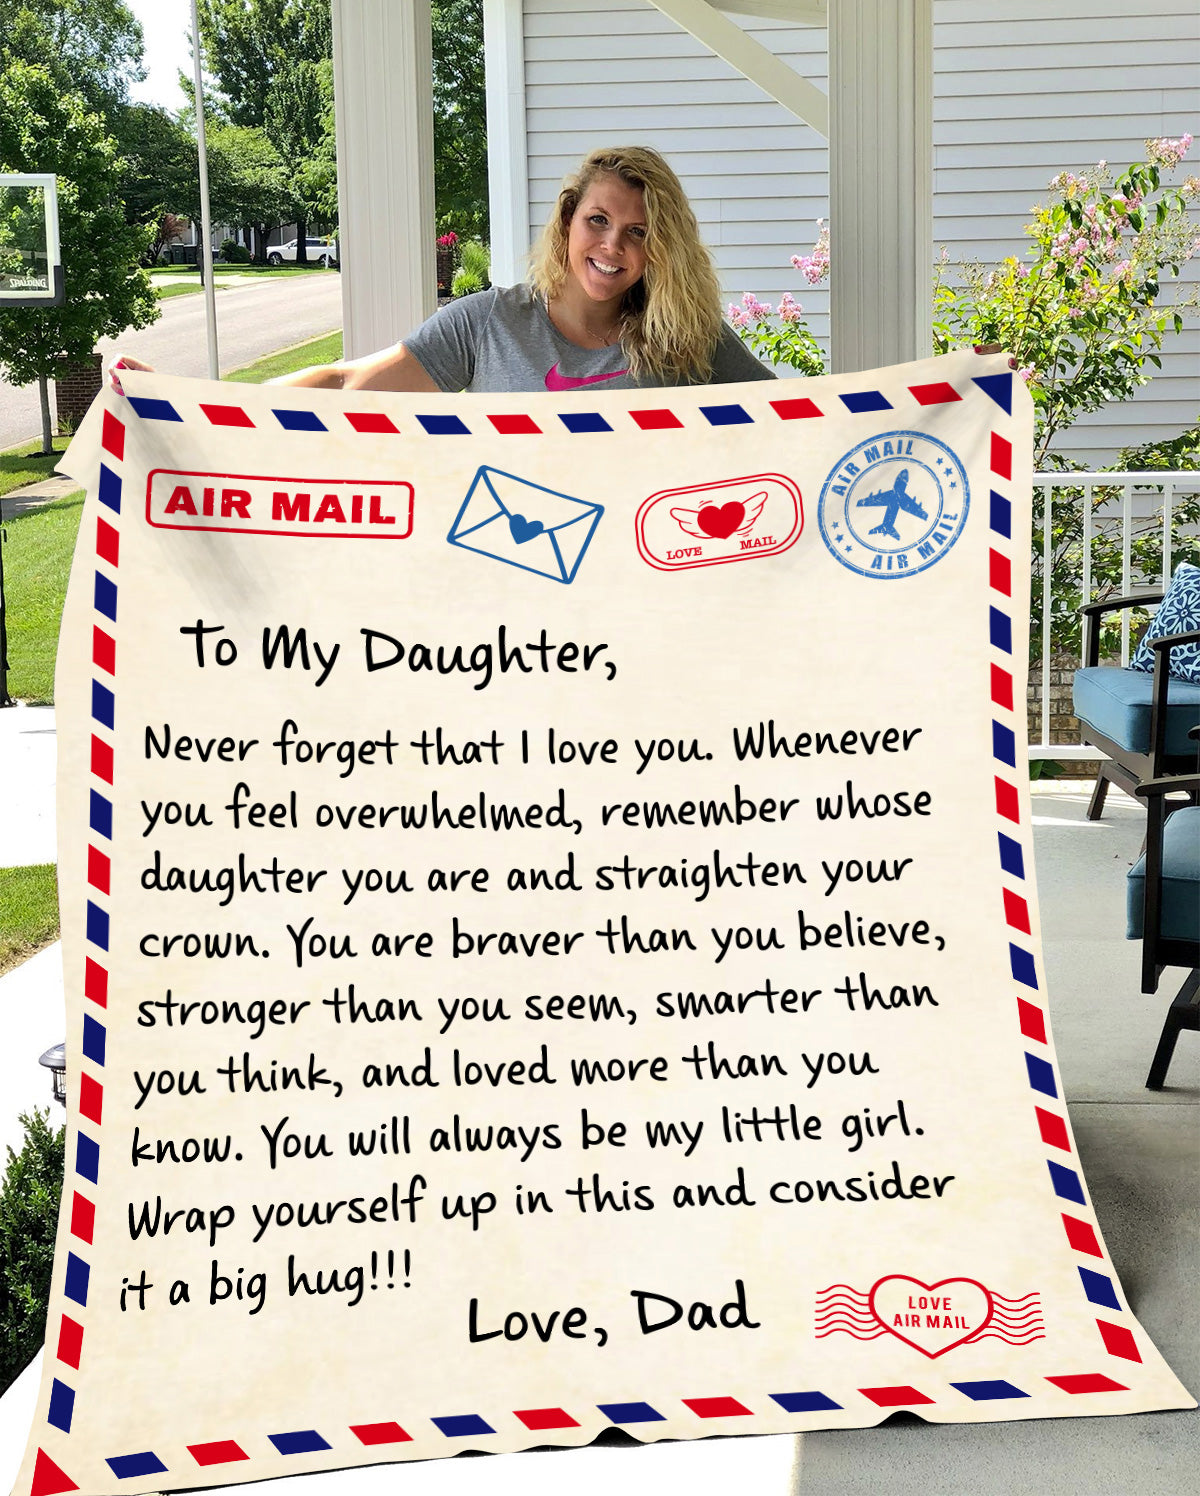 SPALDING
AIR MAIL
LOVE MAIL
AIR MAIL
AIR MAIL
To My Daughter,
Never forget that I love you. Whenever
you feel overwhelmed, remember whose
daughter you are and straighten your
crown. You are braver than you believe,
stronger than you seem, smarter than
you think, and loved more than you
know. You will always be my little girl.
Wrap yourself up in this and consider
it a big hug!!!
Love, Dad
LOVE
AIR MAIL